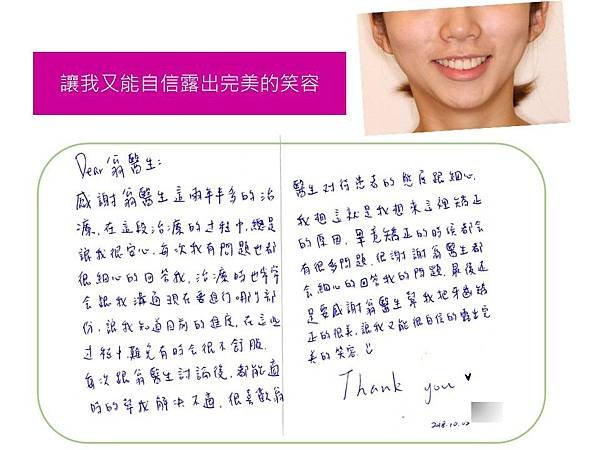 讓我又能自信露出完美的笑容
Dear 翁醫生:
感謝翁醫生這兩年半多的治
療,在這段治療的過程中,總是
讓我很安心,每次我有問題也都
很細心的回答我,治療時也常常
會跟我溝通現在要進行哪部
份,讓我知道目前的進度,在這些
過程中難免有時會很不舒服,
每次跟翁醫生討論後,都能適
時的幫我解決不適,很喜歡翁
醫生对待患者的態度跟細心,
我想這就是我想來這裡矯正
的原因,畢竟矯正的時候都會
有很多問題,很謝謝翁醫生都
會細心的回答我的問題,最後還
是要感謝翁醫生幫我把牙齒矯
正的很美,讓我又能很自信的露出完
美的笑容.
Thank you ♥
2018.10.02